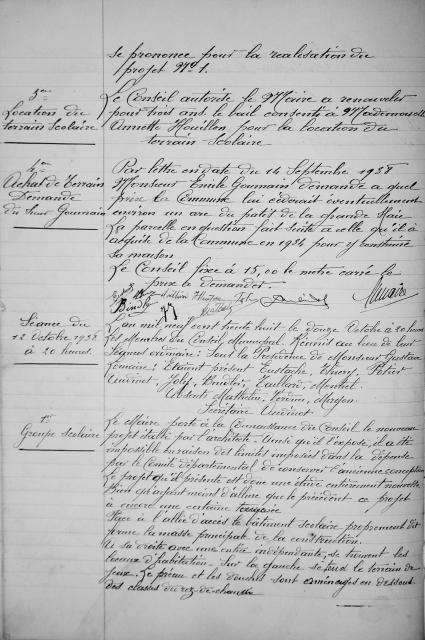 se prononce pour la realisation du
projet N° 1.
3me
Location du
terrain scolaire
Le Conseil autorise le Maire a renouveler
pour trois ans le bail consenti à Mademoiselle
Annette Houillon pour la location du
terrain scolaire
4me
Achat de Terrain
Demande
du Sieur Goumain
Par lettre en date du 14 Septembre 1938
Monsieur Emile Goumain demande a quel
prix la Commune lui céderait éventuellement
environ un are du patis de la Grande Haie
La parcelle en question fait suite a celle qu'il a
acquise de la Commune en 1934 pour y construire
sa maison
Le Conseil fixe à 15,00 le mètre carré le
prix le demander.
Séance du
12 Octobre 1938
à 20 heures.
L'an mil neuf cent trente huit le douze Octobre à 20 heures
Les Membres du Conseil Municipal Réunis au lieu de leur
Séances ordinaire: Sous la Présidence de Monsieur Gustave
Lemaire: Etaient présent Eustache, Thiery, Petier
Undinet, Joly, Bindler, Taillard, Montiel.
Absents Mathelin, Jerome, Margon
Secrétaire Undinet
1er
Groupe scolaire
Le Maire porte à la Connaissance du Conseil le nouveau
projet établi par l'architecte. Ainsi qu'il l'expose, il a été
impossible en raison des limites imposées dans la dépense
par le Comité départemental de conserver l'ancienne conception
Le projet qu'il présente est donc une étude entièrement nouvelle
Bien qu'ayant moins d'allure que le précédent ce projet
a encore une certaine
Face à l'allée d'accès le bâtiment scolaire proprement dit
forme la masse principale de la construction.
A sa droite avec une entrée indépendante, se trouvent les
locaux d'habitation. Sur la gauche s'étend le terrain de
jeux. Le préau et les douches sont aménagés en dessous
des classes du rez-de-chaussée